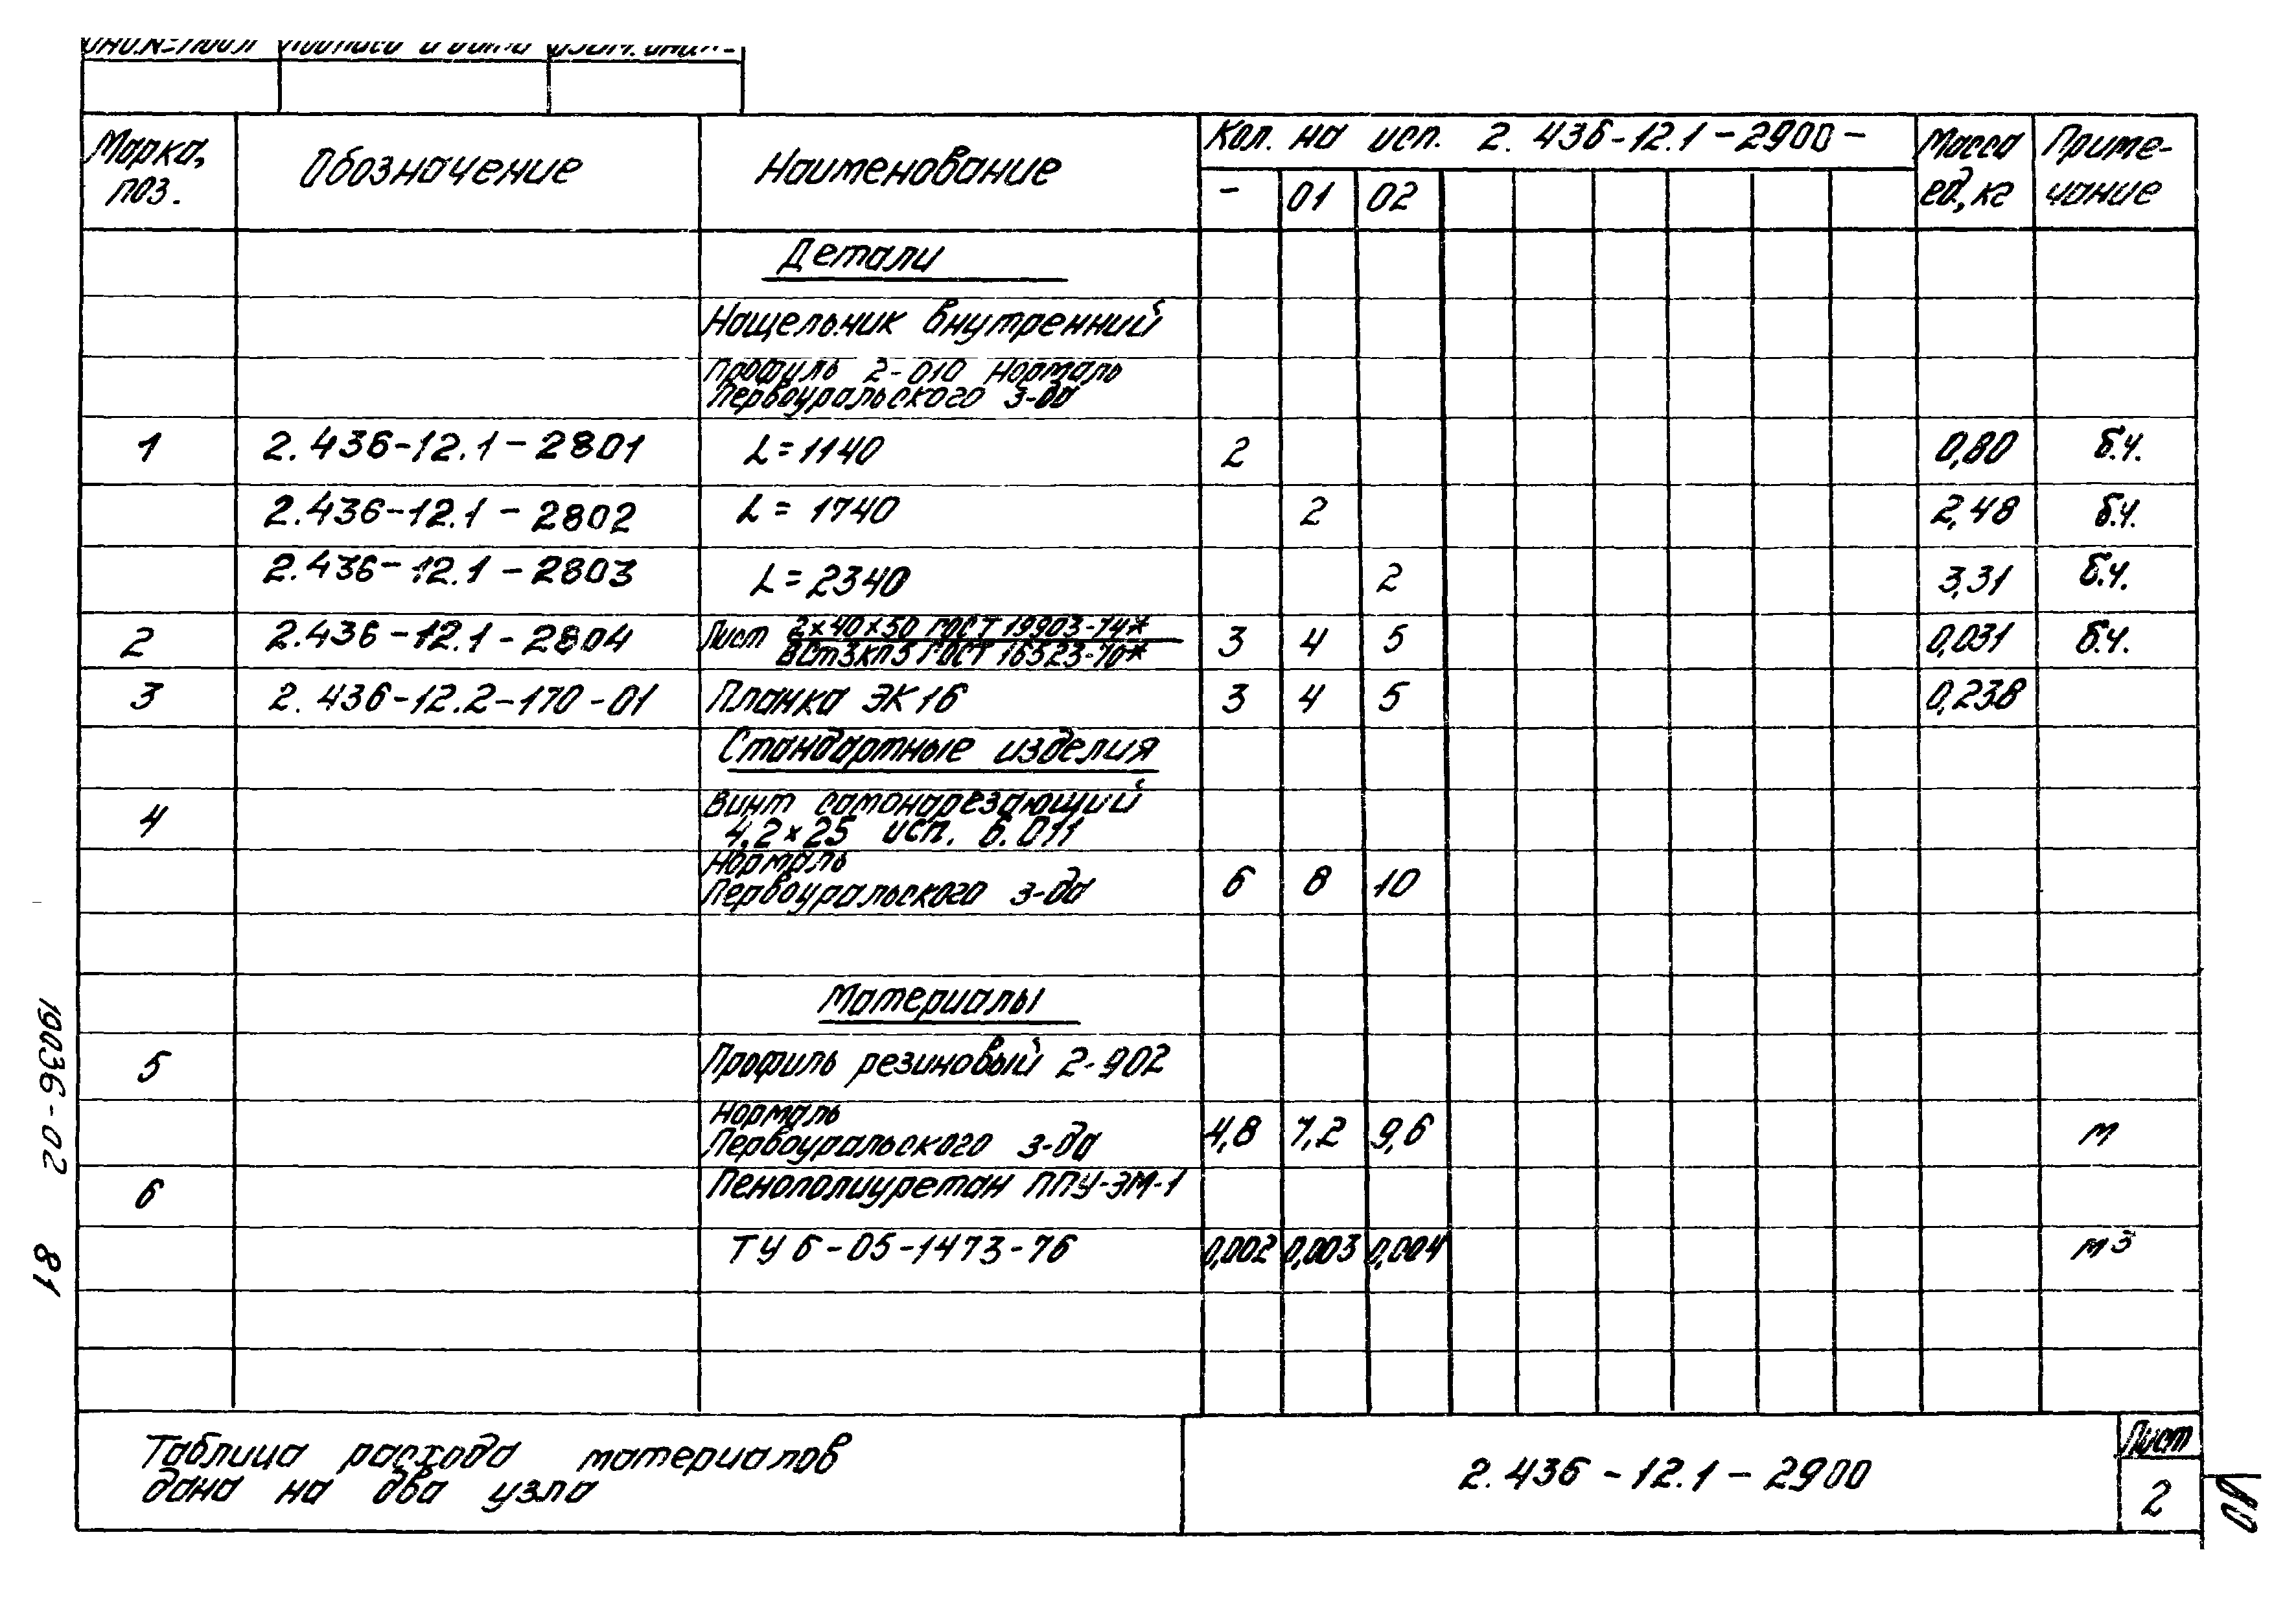 Марка, поз.
Обозначение
Наименование
Кол. на исп. 2.436-12.1-2900-
- 01 02
Масса ед., кг
Приме-
чание
Детали
Нащельник внутренний
Профиль 2-010 Нормаль
Первоуральского з-да
1 2.436-12.1-2801 L=1140 2 0,80 б.ч.
2.436-12.1-2802 L=1740 2 2,48 б.ч.
2.436-12.1-2803 L=2340 2 3,31 б.ч.
2 2.436-12.1-2804 Лист 2×40×50 ГОСТ 19903-74* 3 4 5 0,031 б.ч.
ВСт3кп5 ГОСТ 16523-70*
3 2.436-12.2-170-01 Планка ЭК16 3 4 5 0,238
Стандартные изделия
4 Винт самонарезающий
4,2×25 исп. 6.011
Нормаль
Первоуральского з-да 6 8 10
Материалы
5 Профиль резиновый 2-902
Нормаль
Первоуральского з-да 4,8 7,2 9,6 м
6 Пенополиуретан ППУ-ЭМ-1
ТУ 6-05-1473-76 0,002 0,003 0,004 м3
Таблица расхода материалов
дана на два узла
2.436-12.1-2900
Лист
2
19036-02 81